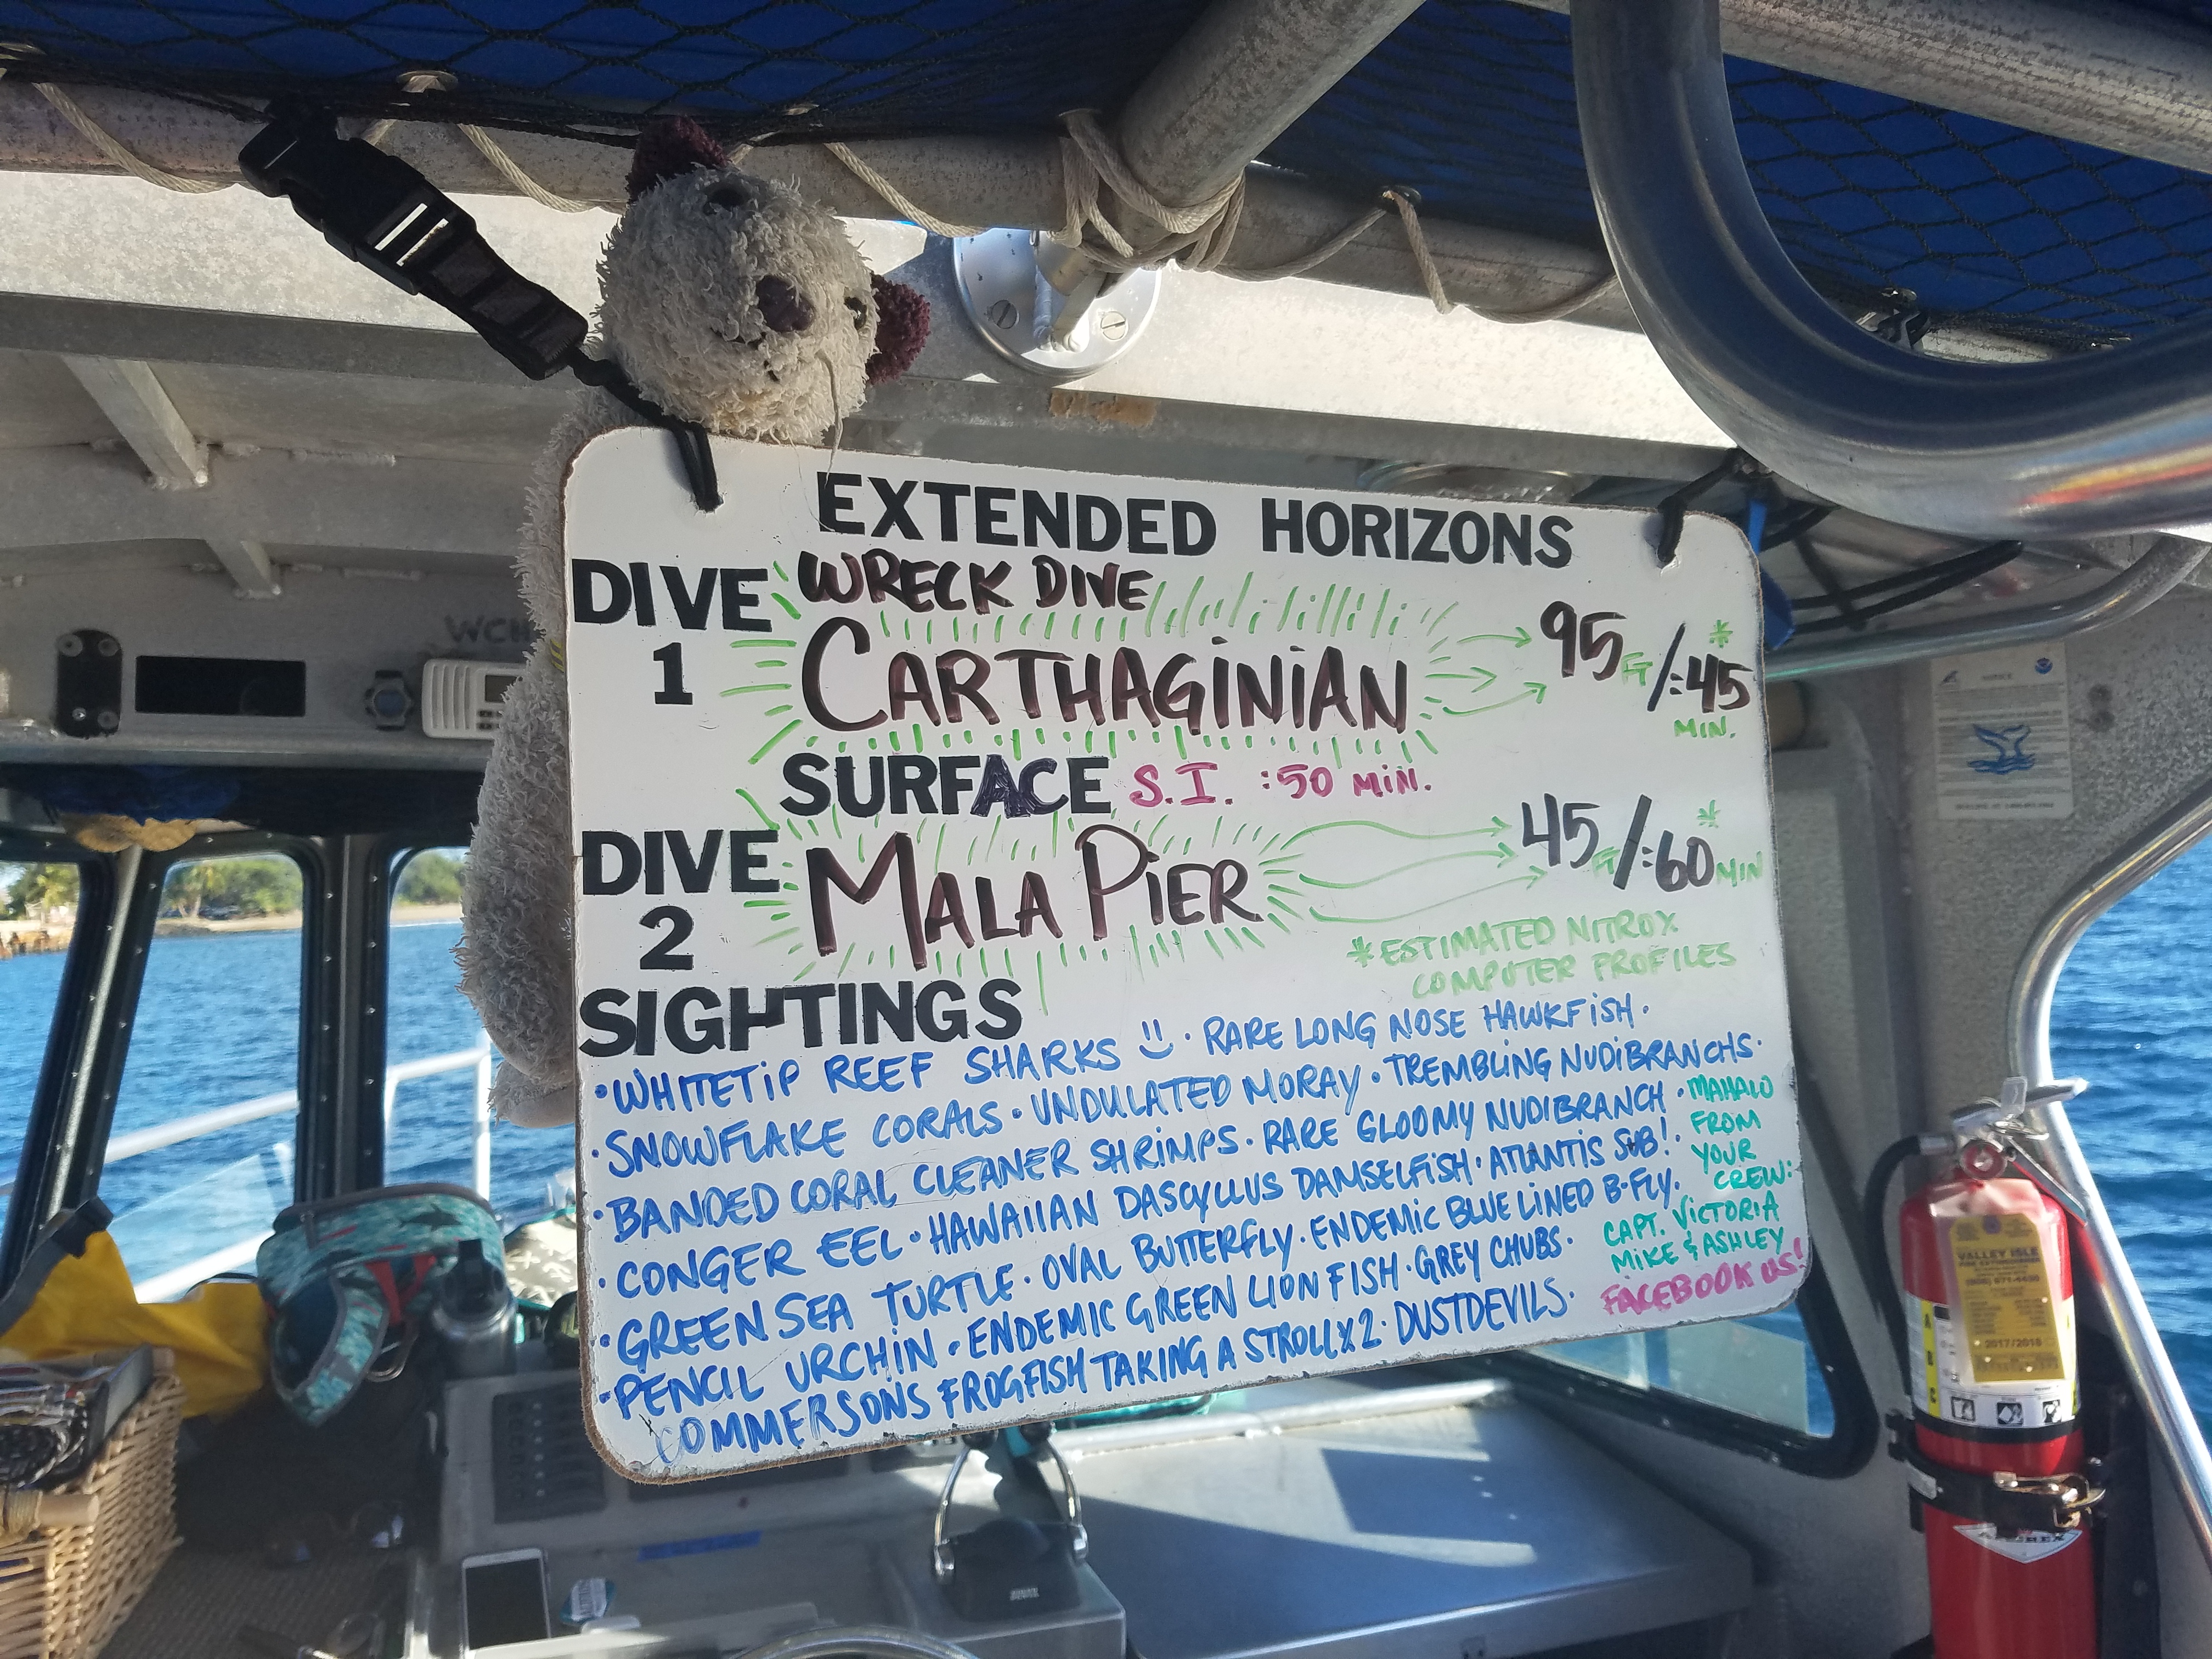 EXTENDED HORIZONS
DIVE 1
WRECK DIVE
CARTHAGINIAN
95 FT / :45 *
MIN.
SURFACE S.I. :50 MIN.
DIVE 2
MALA PIER
45 FT / :60 * MIN
*ESTIMATED NITROX
COMPUTER PROFILES
SIGHTINGS
•WHITETIP REEF SHARKS • RARE LONG NOSE HAWKFISH •
•SNOWFLAKE CORALS • UNDULATED MORAY • TREMBLING NUDIBRANCHS •
•BANDED CORAL CLEANER SHRIMPS • RARE GLOOMY NUDIBRANCH •
•CONGER EEL • HAWAIIAN DASCYLLUS DAMSELFISH • ATLANTIS SUB! •
•GREEN SEA TURTLE • OVAL BUTTERFLY • ENDEMIC BLUE LINED B-FLY •
•PENCIL URCHIN • ENDEMIC GREEN LION FISH • GREY CHUBS •
COMMERSONS FROGFISH TAKING A STROLL X 2 • DUSTDEVILS •
MAHALO
FROM
YOUR
CREW:
CAPT. VICTORIA
MIKE & ASHLEY
FACEBOOK US!
NOTICE
VALLEY ISLE
2017/2018
A
B
C